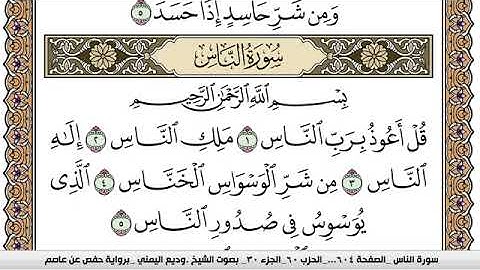 وَمِن شَرِّ حَاسِدٍ إِذَا حَسَدَ ٥
سُورَةُ النَّاسِ
بِسْمِ اللَّهِ الرَّحْمَٰنِ الرَّحِيمِ
قُلْ أَعُوذُ بِرَبِّ النَّاسِ ١ مَلِكِ النَّاسِ ٢ إِلَٰهِ
النَّاسِ ٣ مِن شَرِّ الْوَسْوَاسِ الْخَنَّاسِ ٤ الَّذِي
يُوَسْوِسُ فِي صُدُورِ النَّاسِ ٥
سورة الناس _الصفحة ٦٠٤_...الحزب ٦٠_الجزء ٣٠_ بصوت الشيخ .وديم اليمني _برواية حفص عن عاصم